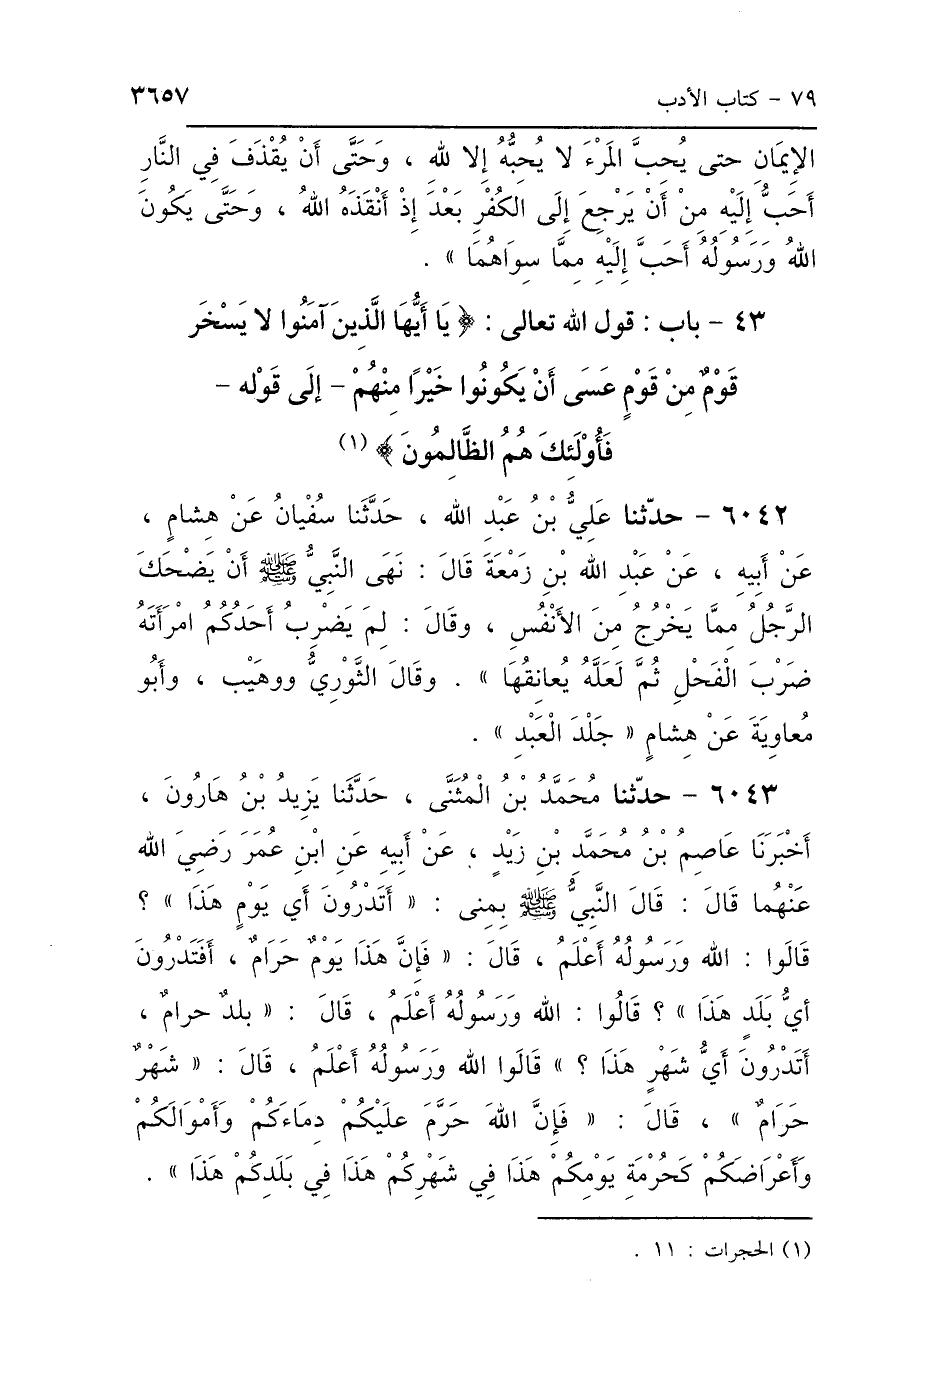 ٧٩ - كتاب الأدب ٣٦٥٧
الإيمَانِ حتى يُحِبَّ المَرْءَ لا يُحِبُّهُ إلا للهِ ، وَحَتَّى أَنْ يُقْذَفَ فِي النَّارِ
أَحَبُّ إِلَيْهِ مِنْ أَنْ يَرْجِعَ إِلَى الكُفْرِ بَعْدَ إِذْ أَنْقَذَهُ اللهُ ، وَحَتَّى يَكُونَ
اللهُ وَرَسُولُهُ أَحَبَّ إِلَيْهِ مِمَّا سِوَاهُمَا » .
٤٣ - باب : قول الله تعالى : ﴿ يَا أَيُّهَا الَّذِينَ آمَنُوا لا يَسْخَر
قَوْمٌ مِنْ قَوْمٍ عَسَى أَنْ يَكُونُوا خَيْرًا مِنْهُمْ - إِلَى قَوْله -
فَأُولَئِكَ هُمُ الظَّالِمُونَ ﴾ (١)
٦٠٤٢ - حدّثنا عَلِيُّ بْنُ عَبْدِ الله ، حَدَّثَنا سُفْيانُ عَنْ هِشامٍ ،
عَنْ أَبِيهِ ، عَنْ عَبْدِ الله بْنِ زَمْعَةَ قَالَ : نَهَى النَّبِيُّ ﷺ أَنْ يَضْحَكَ
الرَّجُلُ مِمَّا يَخْرُجُ مِنَ الأَنْفُسِ ، وقَالَ : لِمَ يَضْرِبُ أَحَدُكُم امْرَأَتَهُ
ضَرْبَ الْفَحْلِ ثُمَّ لَعَلَّهُ يُعانِقُهَا » . وقَالَ الثَّوْرِيُّ ووهَيْب ، وأَبُو
مُعاوِيَةَ عَنْ هِشامٍ « جَلْدَ الْعَبْدِ » .
٦٠٤٣ - حدّثنا مُحَمَّدُ بْنُ الْمُثَنَّى ، حَدَّثَنا يَزِيدُ بْنُ هَارُونَ ،
أَخْبَرَنَا عَاصِمُ بْنُ مُحَمَّدِ بْنِ زَيْدٍ ، عَنْ أَبِيهِ عَنِ ابْنِ عُمَرَ رَضِيَ الله
عَنْهُما قَالَ : قَالَ النَّبِيُّ ﷺ بِمِنى : « أَتَدْرُونَ أَي يَوْمٍ هَذَا » ؟
قَالَوا : الله وَرَسُولُهُ أَعْلَمُ ، قَالَ : « فَإِنَّ هَذَا يَوْمٌ حَرَامٌ ، أَفَتَدْرُونَ
أيُّ بَلَدٍ هَذَا » ؟ قَالُوا : الله وَرَسُولُهُ أَعْلَمُ ، قَالَ : « بلدٌ حرامٌ ،
أَتَدْرُونَ أَيُّ شَهْرٍ هَذَا ؟ » قَالَوا الله وَرَسُولُهُ أَعْلَمُ ، قَالَ : « شَهْرٌ
حَرَامٌ » ، قَالَ : « فَإِنَّ اللهَ حَرَّمَ عَلَيْكُمْ دِمَاءَكُمْ وَأَمْوَالَكُمْ
وَأَعْرَاضَكُمْ كَحُرْمَةِ يَوْمِكُمْ هَذَا فِي شَهْرِكُمْ هَذَا فِي بَلَدِكُمْ هَذَا » .
(١) الحجرات : ١١ .